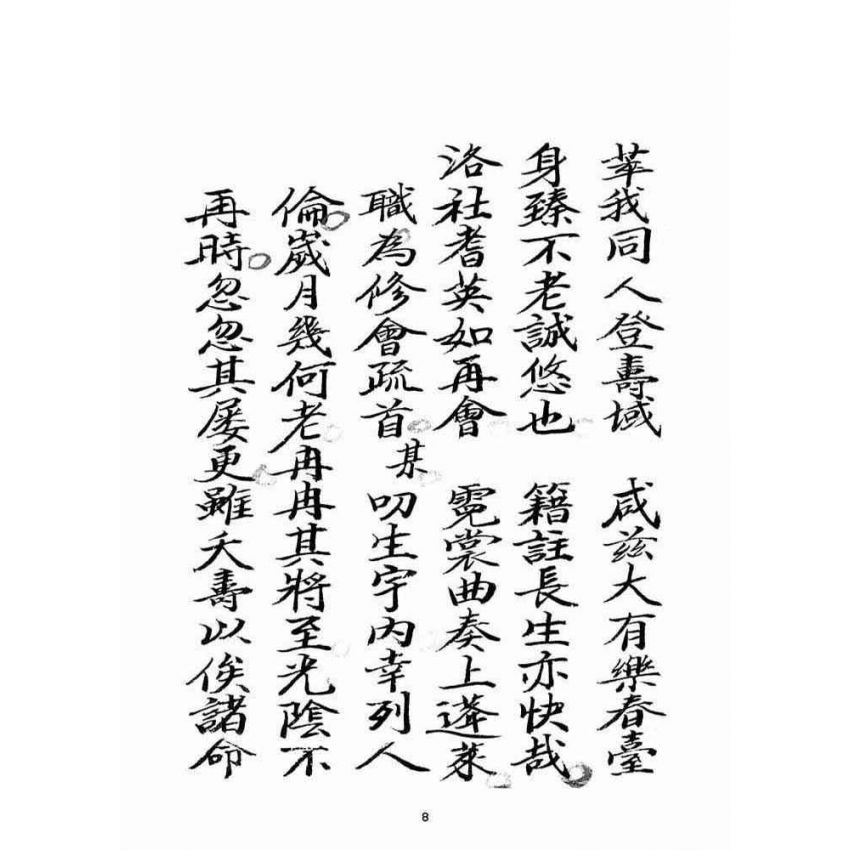 萃我同人登壽域　咸兹大有樂春臺
身臻不老誠悠也　籍註長生亦快哉
洛社耆英如再會　霓裳曲奏上蓬萊
職為修會疏首某叨生宇内幸列人
倫歲月幾何老冉冉其將至光陰不
再時忽忽其屡更雖夭壽以俟諸命
8